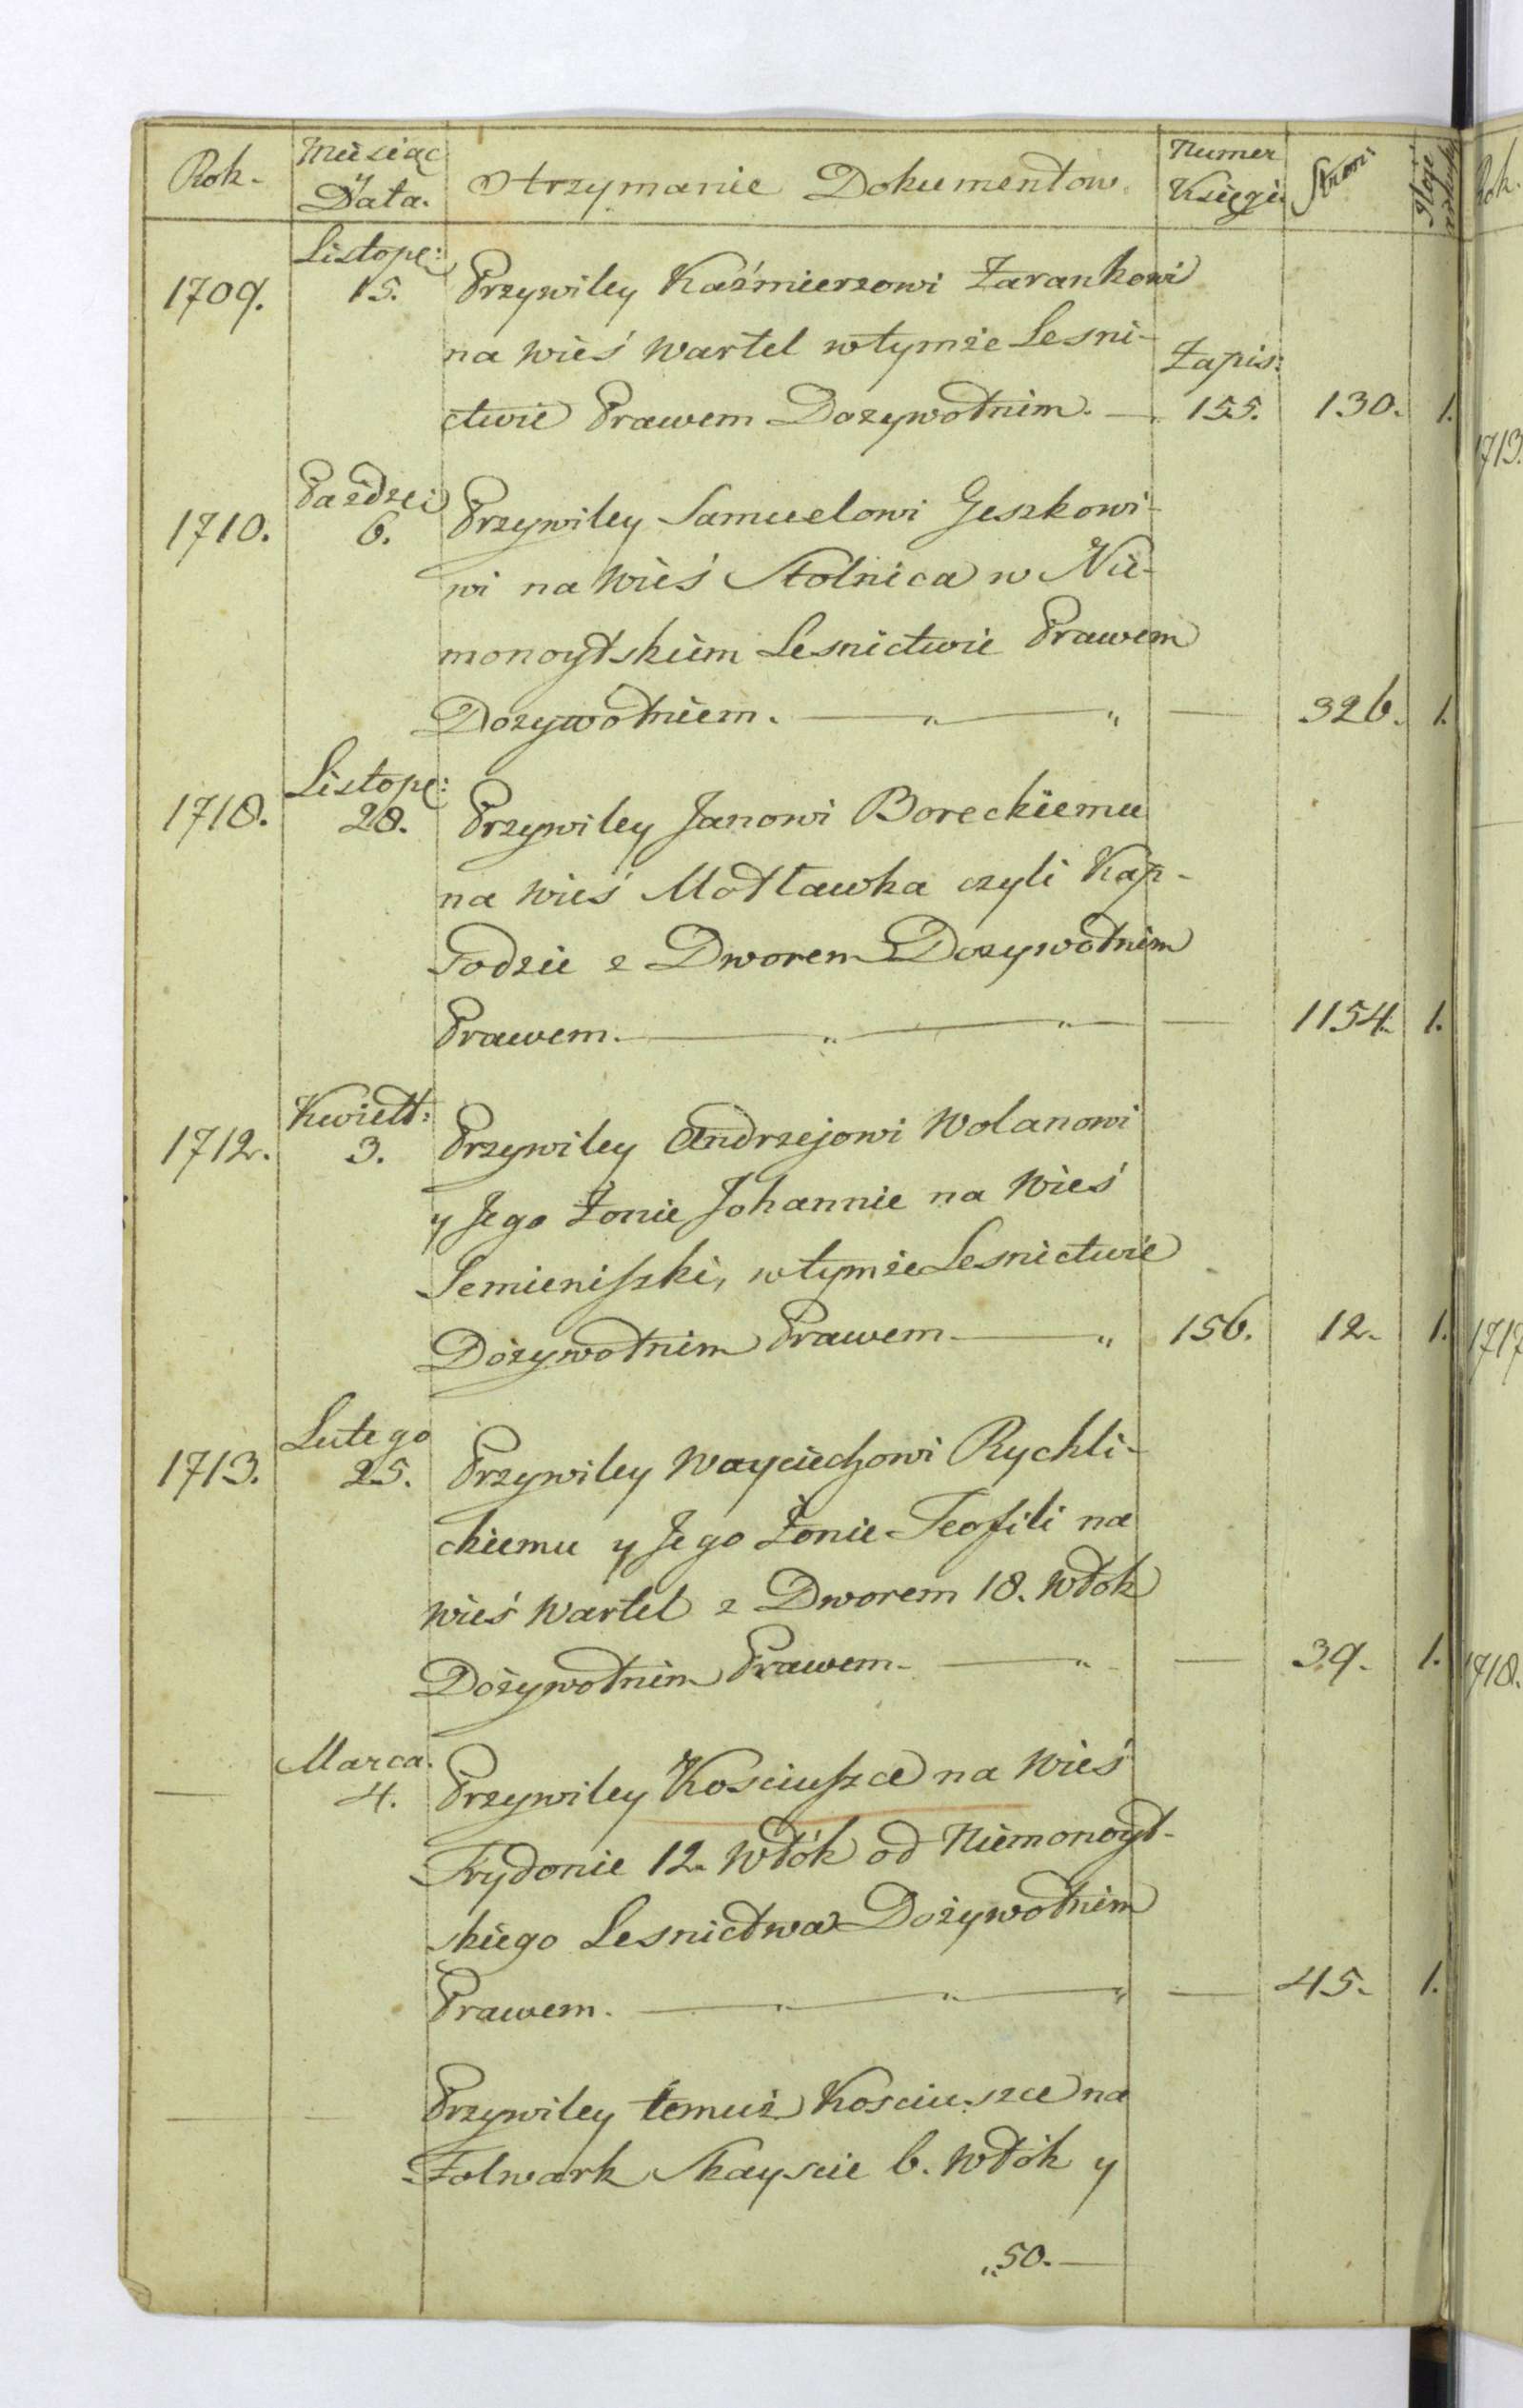 Rok.
Miesiąc
y
Data.
Otrzymanie Dokumentow.
Numer
Księgi.
Stron:
Rok.
Listopę:
1709. 15. Przywiley Kaźmierzowi Zarankowi
na wieś Wartel w tymże Lesni-
Zapis:
ctwie Prawem Dozywotnim. — 155. 130. 1.
1713.
Paździ:
1710. 6. Przywiley Samuelowi Geszkowi-
wi na Wieś Stolnica w Nie-
monoytskiem Lesnictwie Prawem
Dozywotniem. — „ — „ — 326. 1.
Listopę:
1718. 28. Przywiley Janowi Boreckiemu
na wieś Motławka czyli Kap-
Todzie z Dworem Dozywotnim
Prawem. — „ — „ — 1154. 1.
Kwiett:
1712. 3. Przywiley Andrzejowi Wolanowi
y Jego Żonie Johannie na Wieś
Semieniszki, w tymże Lesnictwie
Dożywotnim Prawem — „ 156. 12. 1.
1717
Lutego
1713. 25. Przywiley Wayciechowi Rychli-
ckiemu y Jego Żonie Teofili na
wieś Wartel z Dworem 18. Włok
Dożywotnim Prawem. — „ — 39. 1.
1718.
Marca.
— 4. Przywiley Kosciuszce na Wieś
Trydonie 12. Włók od Niemonoyt-
skiego Lesnictwa Dożywotnim
Prawem. — „ — „ — „ — 45. 1.
— — Przywiley temuż Kosciuszce na
Folwark Skayscie 6. Włók y
„50.—